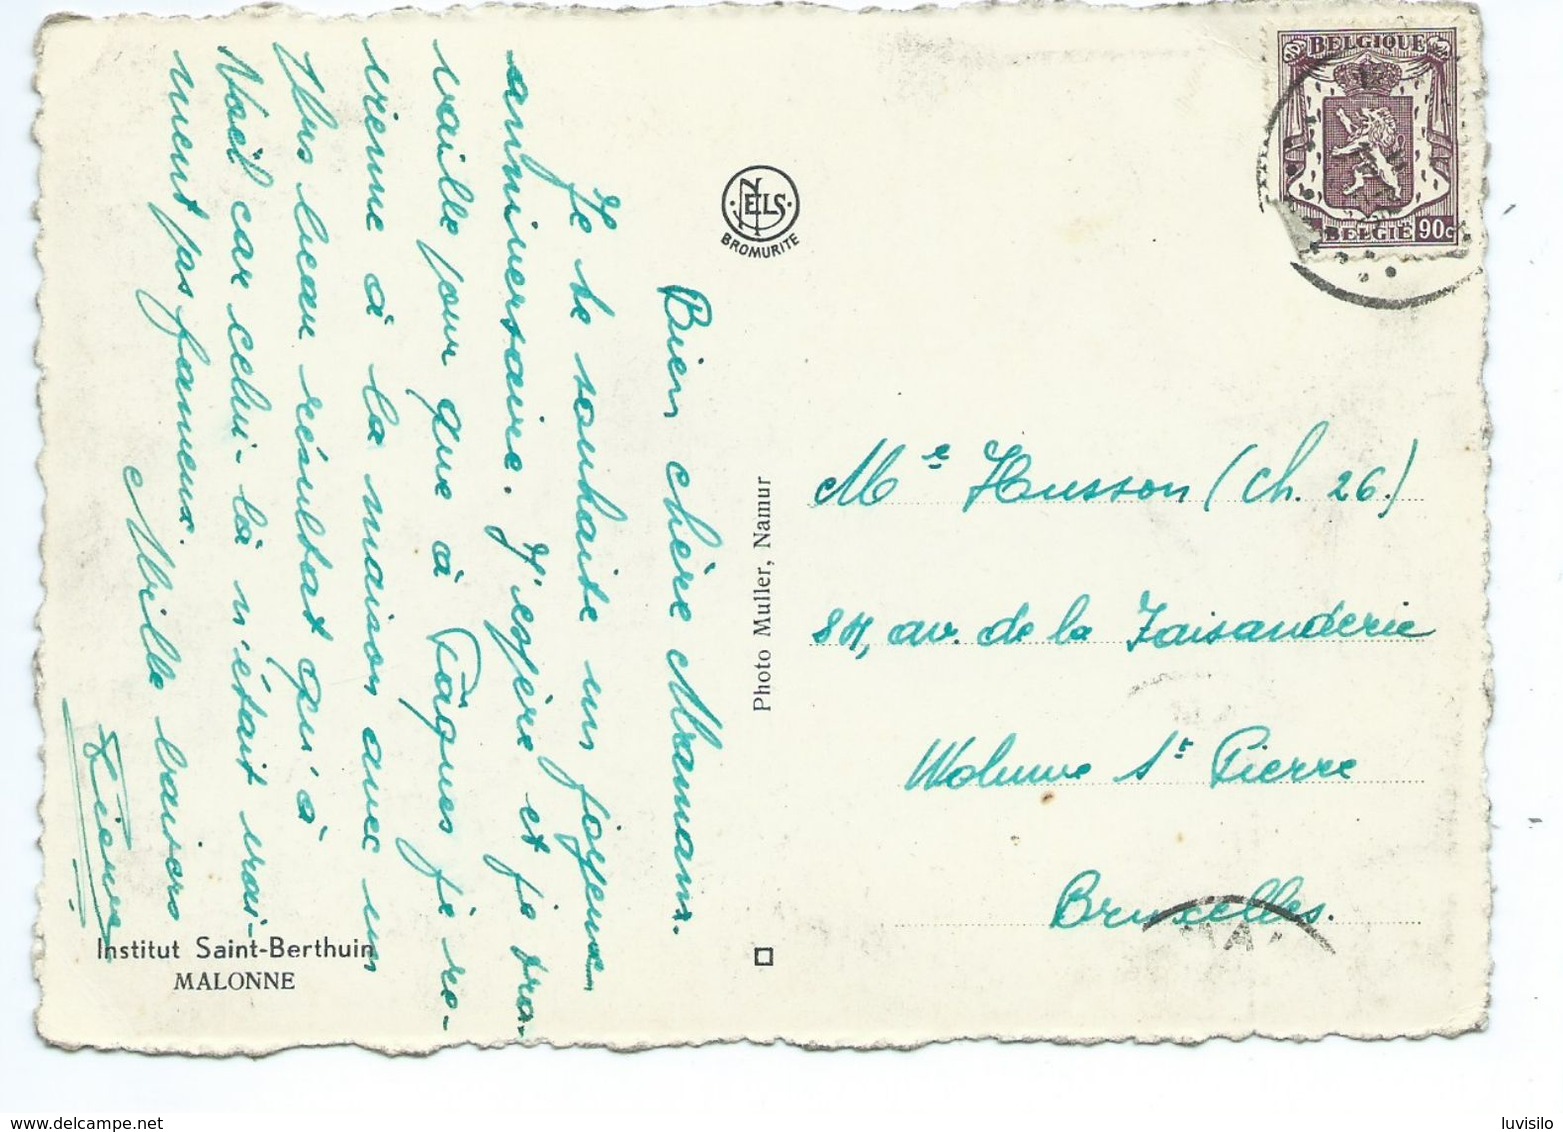 Bien chère Maman.
Je te souhaite un joyeux
anniversaire. J'espère et je tra-
vaille pour que à Pâques je re-
vienne à la maison avec un
plus beau résultat qu'à
Noël car celui-là n'était vrai-
ment pas fameux.
Mille baisers
Institut Saint-Berthuin
MALONNE
NELS
BROMURITE
Photo Muller, Namur
BELGIQUE
BELGIË 90c
Me Husson (Ch. 26.)
84, av. de la Faisanderie
Woluwe St Pierre
Bruxelles.
luvisilo